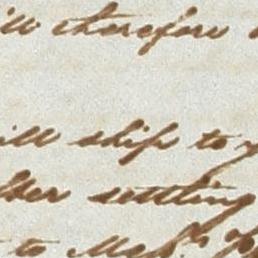 ill therefore
ill ship to y
lder settling
to Mess.rs